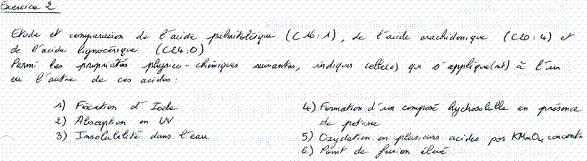 Exercice 2
Etude et comparaison de l'acide palmitoléique (C16:1), de l'acide arachidonique (C20:4) et
de l'acide lignocérique (C24:0)
Parmi les propriétés physico-chimiques suivantes, indiquer celle(s) qui s'applique(nt) à l'un
ou l'autre de ces acides :
1) Fixation d'Iode
2) Absorption en UV
3) Insolubilité dans l'eau
4) Formation d'un composé hydrosoluble en présence
de potasse
5) Oxydation en plusieurs acides par KMnO4 concentré
6) Point de fusion élevé